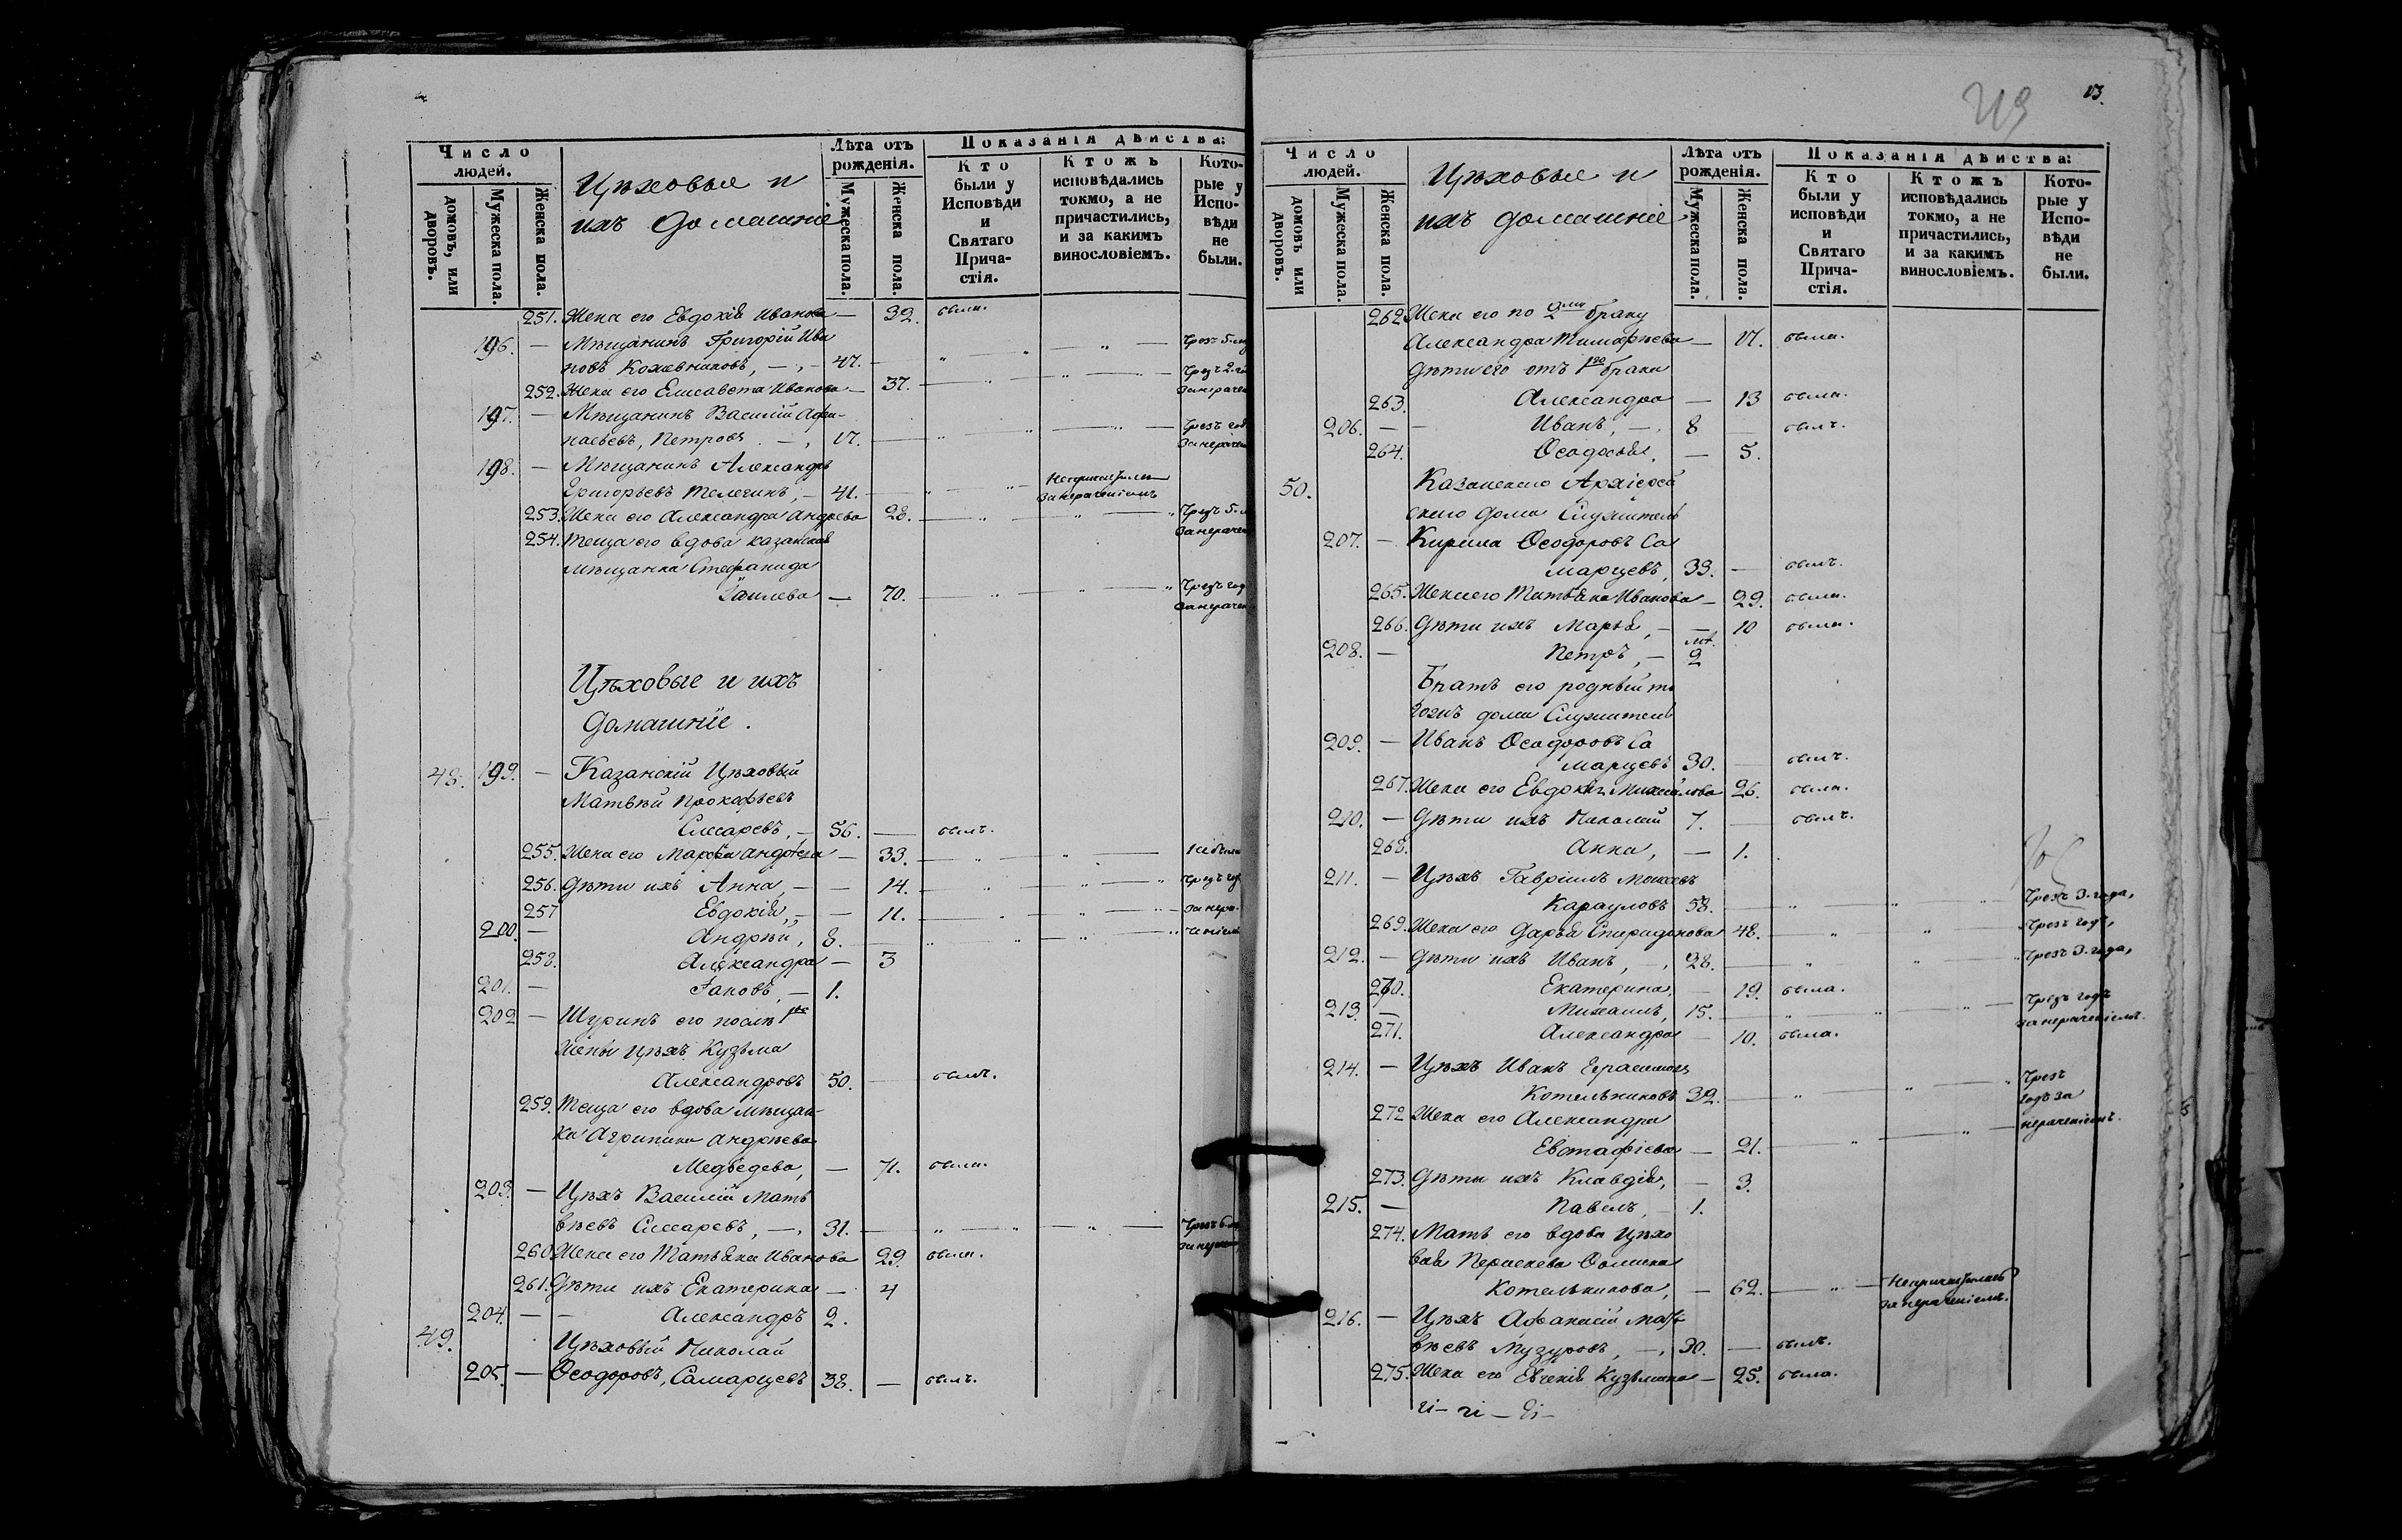 Число людей.
домовъ, или дворовъ.
Мужеска пола.
Женска пола.
Цѣховые и
ихъ домашніе
Лѣта отъ рожденія.
Мужеска пола.
Женска пола.
Показанія дѣйства:
Кто были у Исповѣди и Святаго Прича-стія.
Ктожъ исповѣдались токмо, а не причастились, и за какимъ винословіемъ.
Кото-рые у Испо-вѣди не были.
251. Жена его Евдокія Иванова — 32. была.
196. — Мѣщанинъ Григорій Ива
новъ Кожевниковъ, — 47. —
252. Жена его Елисавета Иванова — 37.
197. — Мѣщанинъ Василій Афа-
насьевъ, Петровъ. — 17.
198. — Мѣщанинъ Александръ
Григорьевъ Телегинъ, — 41. за нераченіемъ
253. Жена его Александра Андреева 28.
254. Теща его вдова казанская
мѣщанка Стефанида
— 70.
Цѣховые и ихъ
домашніе.
48. 199. — Казанскій Цѣховый
Матвѣй Прокофьевъ
Слесаревъ, — 56. — былъ.
255. Жена его Марфа Андреева — 33. Не была
256. Дѣти ихъ Анна, — — 14.
257 Евдокія, — — 11.
200. — Андрей, 8.
258. Александра — 3
201. — Іаковъ, — 1.
202 — Шуринъ его послѣ 1ой
жены цѣх. Кузьма
Александровъ 50. — былъ.
259. Теща его вдова мѣщан-
ка Агрипина Андреева
Медвѣдева, — 71. была.
203. — Цѣхъ Василій Матв
ѣевъ Слесаревъ, — 31.
260. Жена его Татьяна Иванова 29. была.
261. Дѣти ихъ Екатерина — 4
204. — — Александръ 2.
49. Цѣховый Николай
205. — Ѳеодоровъ, Самарцевъ 38. — былъ.
13.
Число людей.
домовъ или дворовъ.
Мужеска пола.
Женска пола.
Цѣховые и
ихъ домашніе
Лѣта отъ рожденія.
Мужеска пола.
Женска пола.
Показанія дѣйства:
Кто были у исповѣди и Святаго Прича-стія.
Ктожъ исповѣдались токмо, а не причастились, и за какимъ винословіемъ.
Кото-рые у Испо-вѣди не были.
262. Жена его по 2му браку
Александра Тимофѣева — 17. была.
Дѣти его отъ 1го брака
263. Александра — 13 была.
206. — — Иванъ, — 8 — былъ.
264. Ѳеодосія, — 5.
50. Казанскаго Архіерей
скаго дома Служитель
207. — Кирила Ѳеодоровъ Са
марцевъ, 33. — былъ.
265. Жена его Татьяна Иванова — 29. была.
266. Дѣти ихъ Марья, — — 10 была.
208. — Петръ, — 2
Братъ его родный то
гожъ дома Служитель
209. — Иванъ Ѳеодоровъ Са
марцевъ 30. — былъ.
267. Жена его Евдокія Михайлова 26. была.
210. — Дѣти ихъ Николай 7. — былъ.
268. Анна, — 1.
211. — Цѣхъ Гавріилъ Моисеевъ
Карауловъ 58. Чрезъ 3. года,
269. Жена его Дарья Спиридонова 48. Чрезъ годъ,
212. — Дѣти ихъ Иванъ, — 28. Чрезъ 3. года,
270. Екатерина, — 19. была.
213. — Михаилъ, 15. Чрезъ годъ за нераченіемъ.
271. Александра — 10. была.
214. — Цѣхъ Иванъ Герасимовъ
Котельниковъ 32. Чрезъ
272 Жена его Александра годъ за
Евстафіева — 21. нераченіемъ.
273. Дѣти ихъ Клавдія, — 3.
215. — Павелъ, — 1.
274. Мать его вдова цѣхо
вая Параскева Ѳомина
Котельникова, — 62. за нераченіемъ.
216. — Цѣхъ Афанасій Матв
ѣевъ Музуровъ, — 30. — былъ.
275. Жена его Евгенія Кузьмина — 25. была.